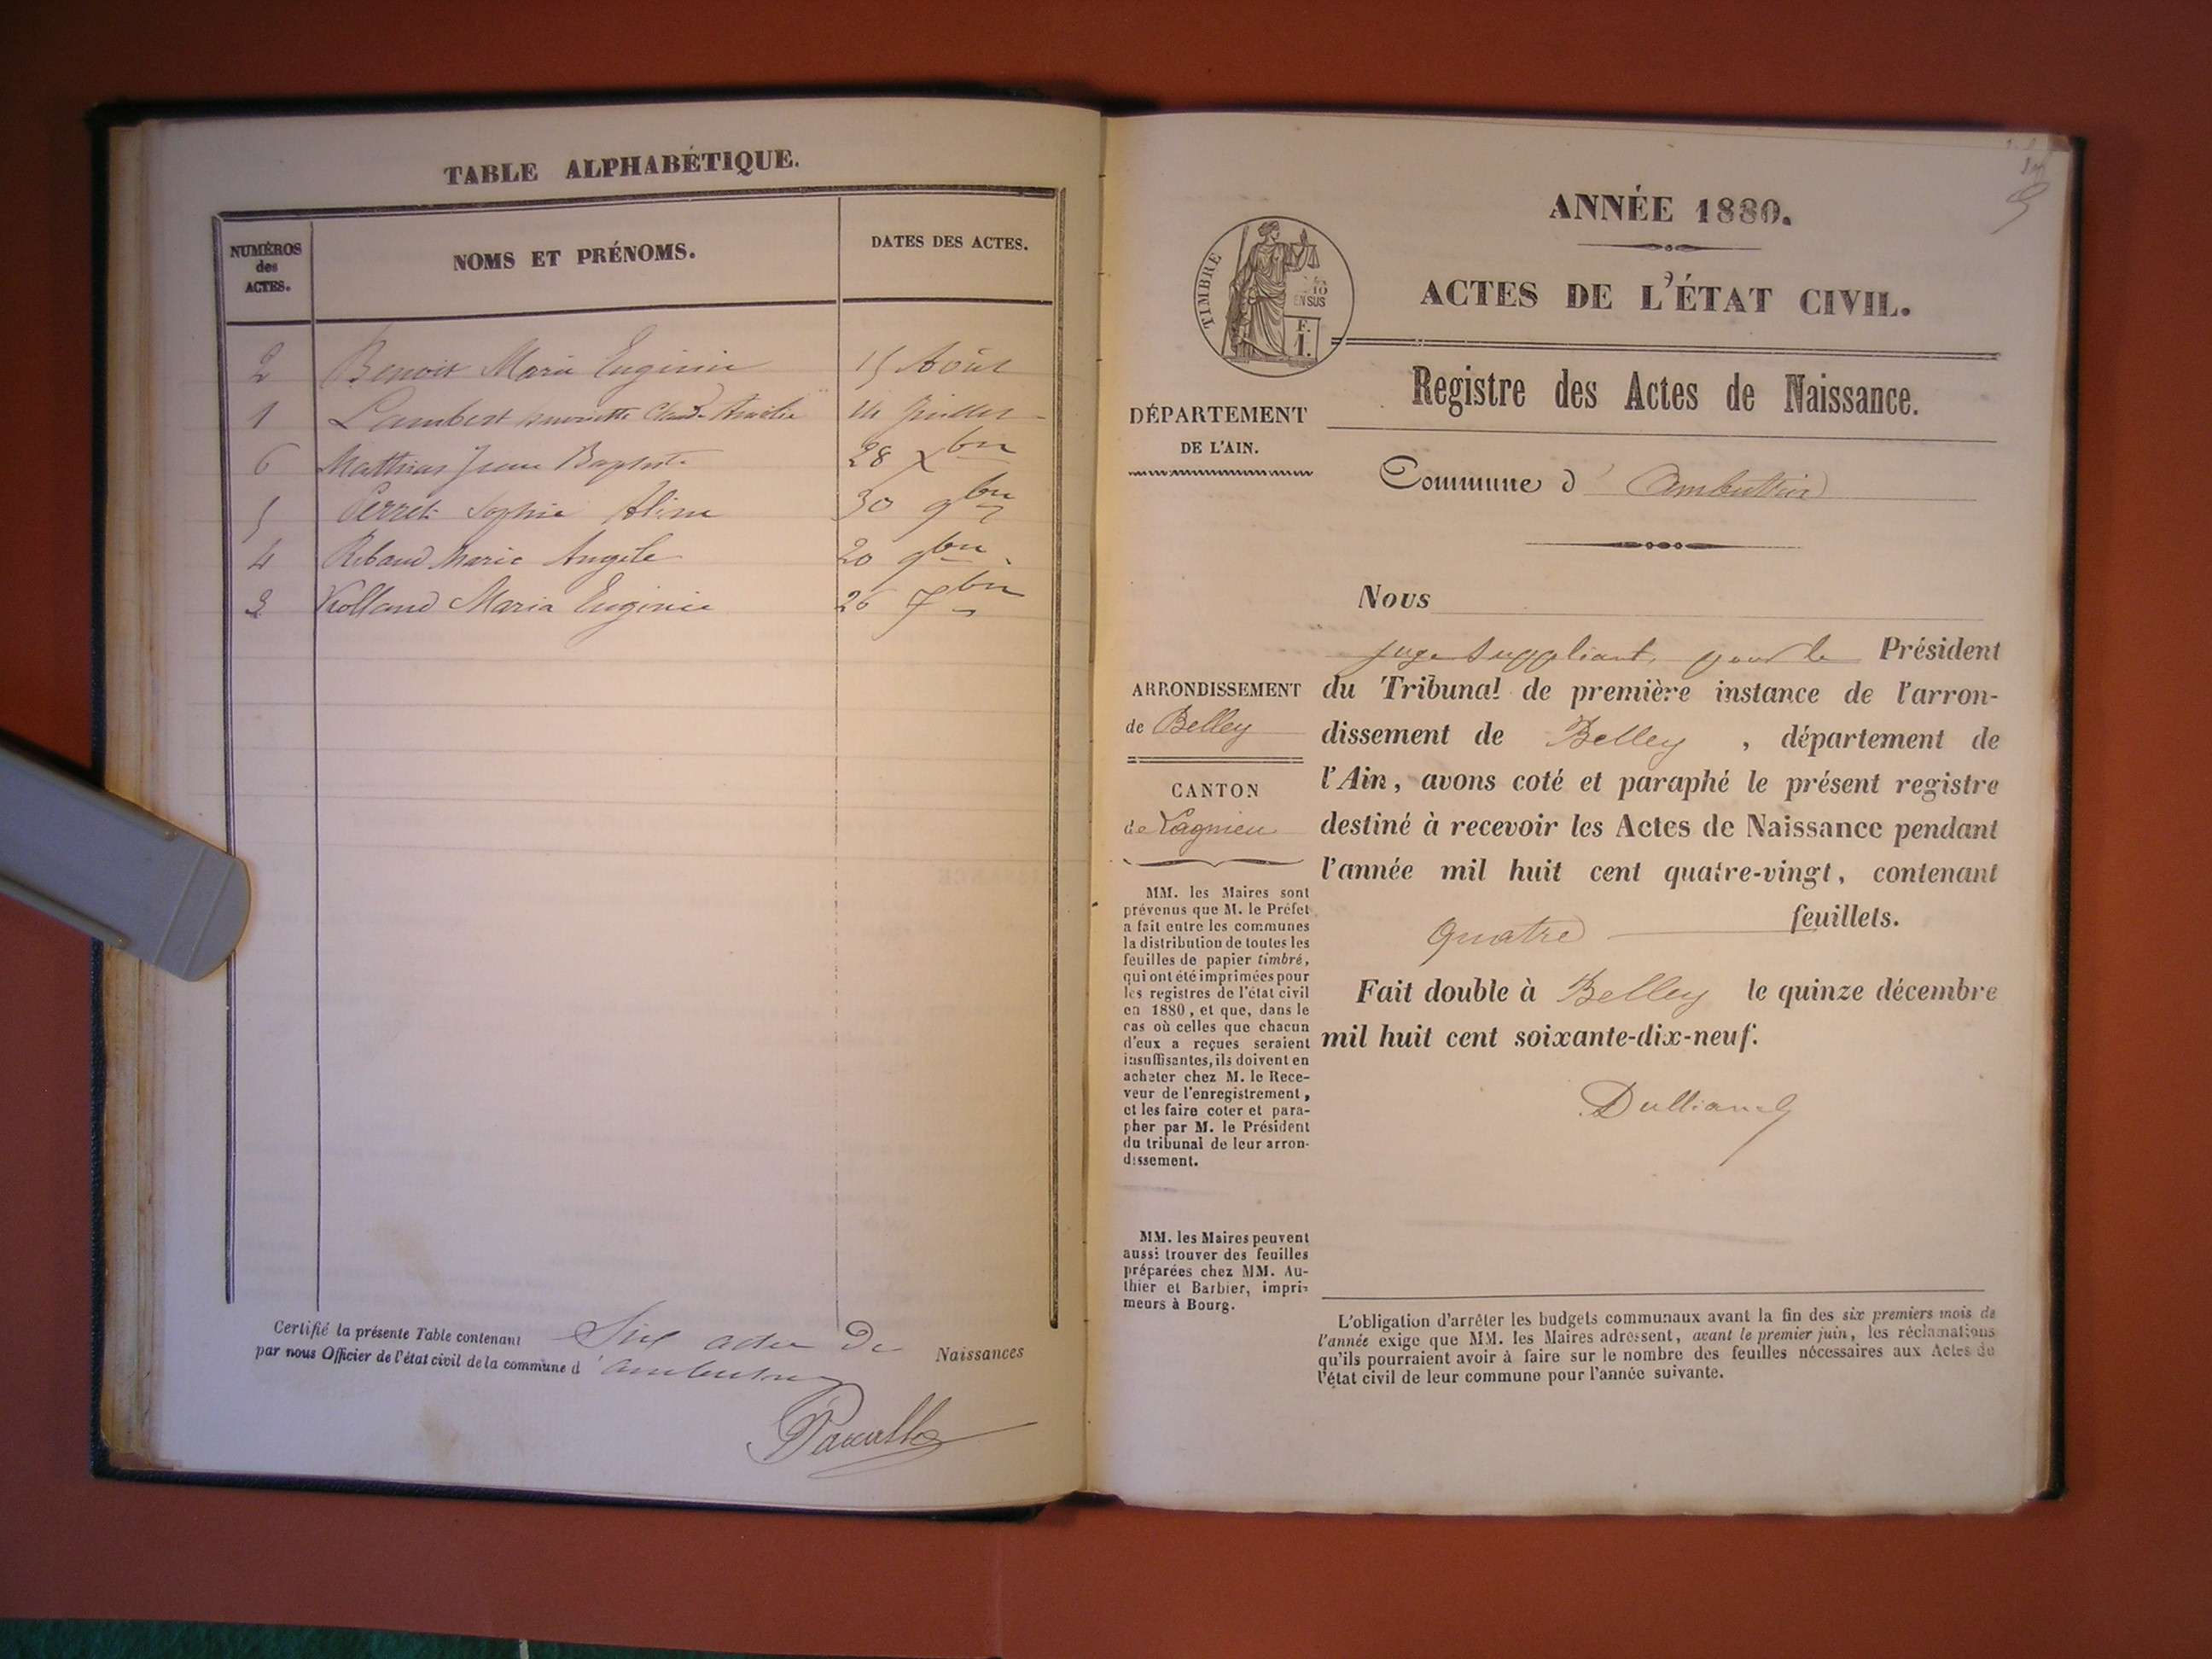 TABLE ALPHABÉTIQUE.
NUMÉROS
des
ACTES.
NOMS ET PRÉNOMS.
DATES DES ACTES.
2 Benoit Maria Eugénie 15 Août
1 Lambert Claude Amélie 14 Juillet
6 Matthias Jean Baptiste 28 Xbre
5 Perret Sophie Aline 30 9bre
4 Ribaud Marie Angèle 20 9bre
3 Rolland Maria Eugénie 26 7bre
Certifié la présente Table contenant Six actes De Naissances
par nous Officier de l'état civil de la commune d' Ambutrix
TIMBRE
10
EN SUS
F.
1.
ANNÉE 1880.
ACTES DE L'ÉTAT CIVIL.
Registre des Actes de Naissance.
DÉPARTEMENT
DE L'AIN.
Commune d' Ambutrix
Nous
juge suppléant, pour le Président
du Tribunal de première instance de l'arron-
dissement de Belley, département de
l'Ain, avons coté et paraphé le présent registre
destiné à recevoir les Actes de Naissance pendant
l'année mil huit cent quatre-vingt, contenant
quatre feuillets.
Fait double à Belley le quinze décembre
mil huit cent soixante-dix-neuf.
ARRONDISSEMENT
de Belley
CANTON
de Lagnieu
MM. les Maires sont
prévenus que M. le Préfet
a fait entre les communes
la distribution de toutes les
feuilles de papier timbré,
qui ont été imprimées pour
les registres de l'état civil
en 1880, et que, dans le
cas où celles que chacun
d'eux a reçues seraient
insuffisantes, ils doivent en
acheter chez M. le Rece-
veur de l'enregistrement,
et les faire coter et para-
pher par M. le Président
du tribunal de leur arron-
dissement.
MM. les Maires peuvent
aussi trouver des feuilles
préparées chez MM. Au-
thier et Barbier, impri-
meurs à Bourg.
L'obligation d'arrêter les budgets communaux avant la fin des six premiers mois de
l'année exige que MM. les Maires adressent, avant le premier juin, les réclamations
qu'ils pourraient avoir à faire sur le nombre des feuilles nécessaires aux Actes de
l'état civil de leur commune pour l'année suivante.